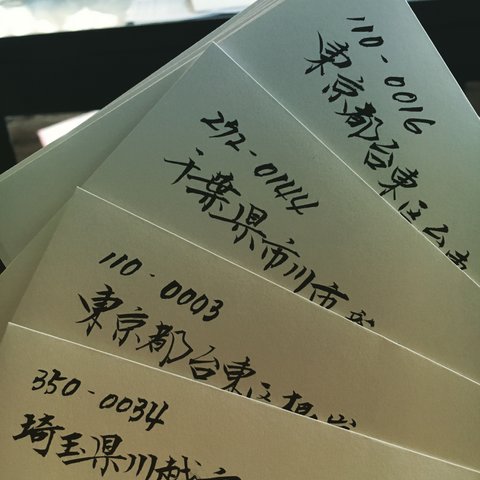 110-0016
東京都台東区台東
272-0144
千葉県市川市
110-0003
東京都台東区根岸
350-0034
埼玉県川越市